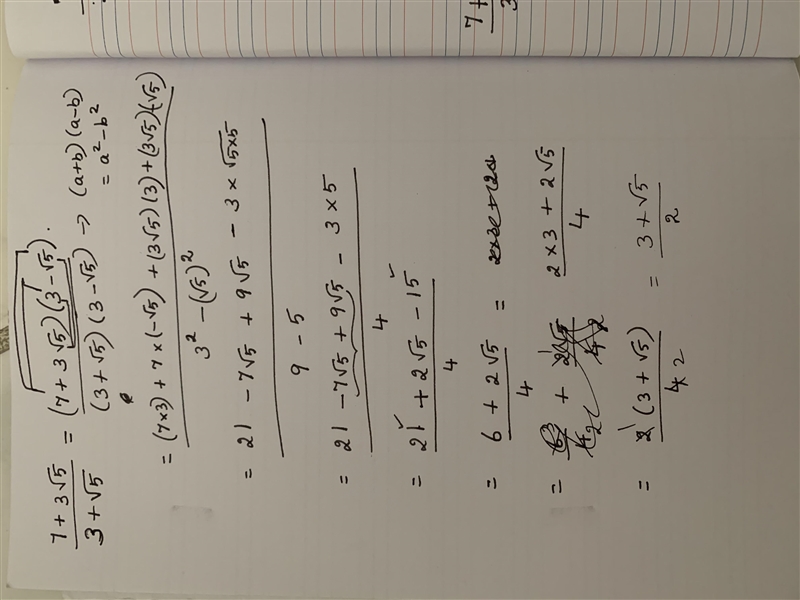 7+
3
(7+3√5)/(3+√5) = (7+3√5)(3-√5)/(3+√5)(3-√5) → (a+b)(a-b)
= a²-b²
= (7×3)+7×(-√5)+(3√5)(3)+(3√5)(-√5)/3²-(√5)²
= 21 - 7√5 + 9√5 - 3×√5×5/9-5
= 21-7√5+9√5-3×5/4
= 21+2√5-15/4
= 6+2√5/4 =
= 2×3+2√5/4
= 2(3+√5)/4 2 = 3+√5/2